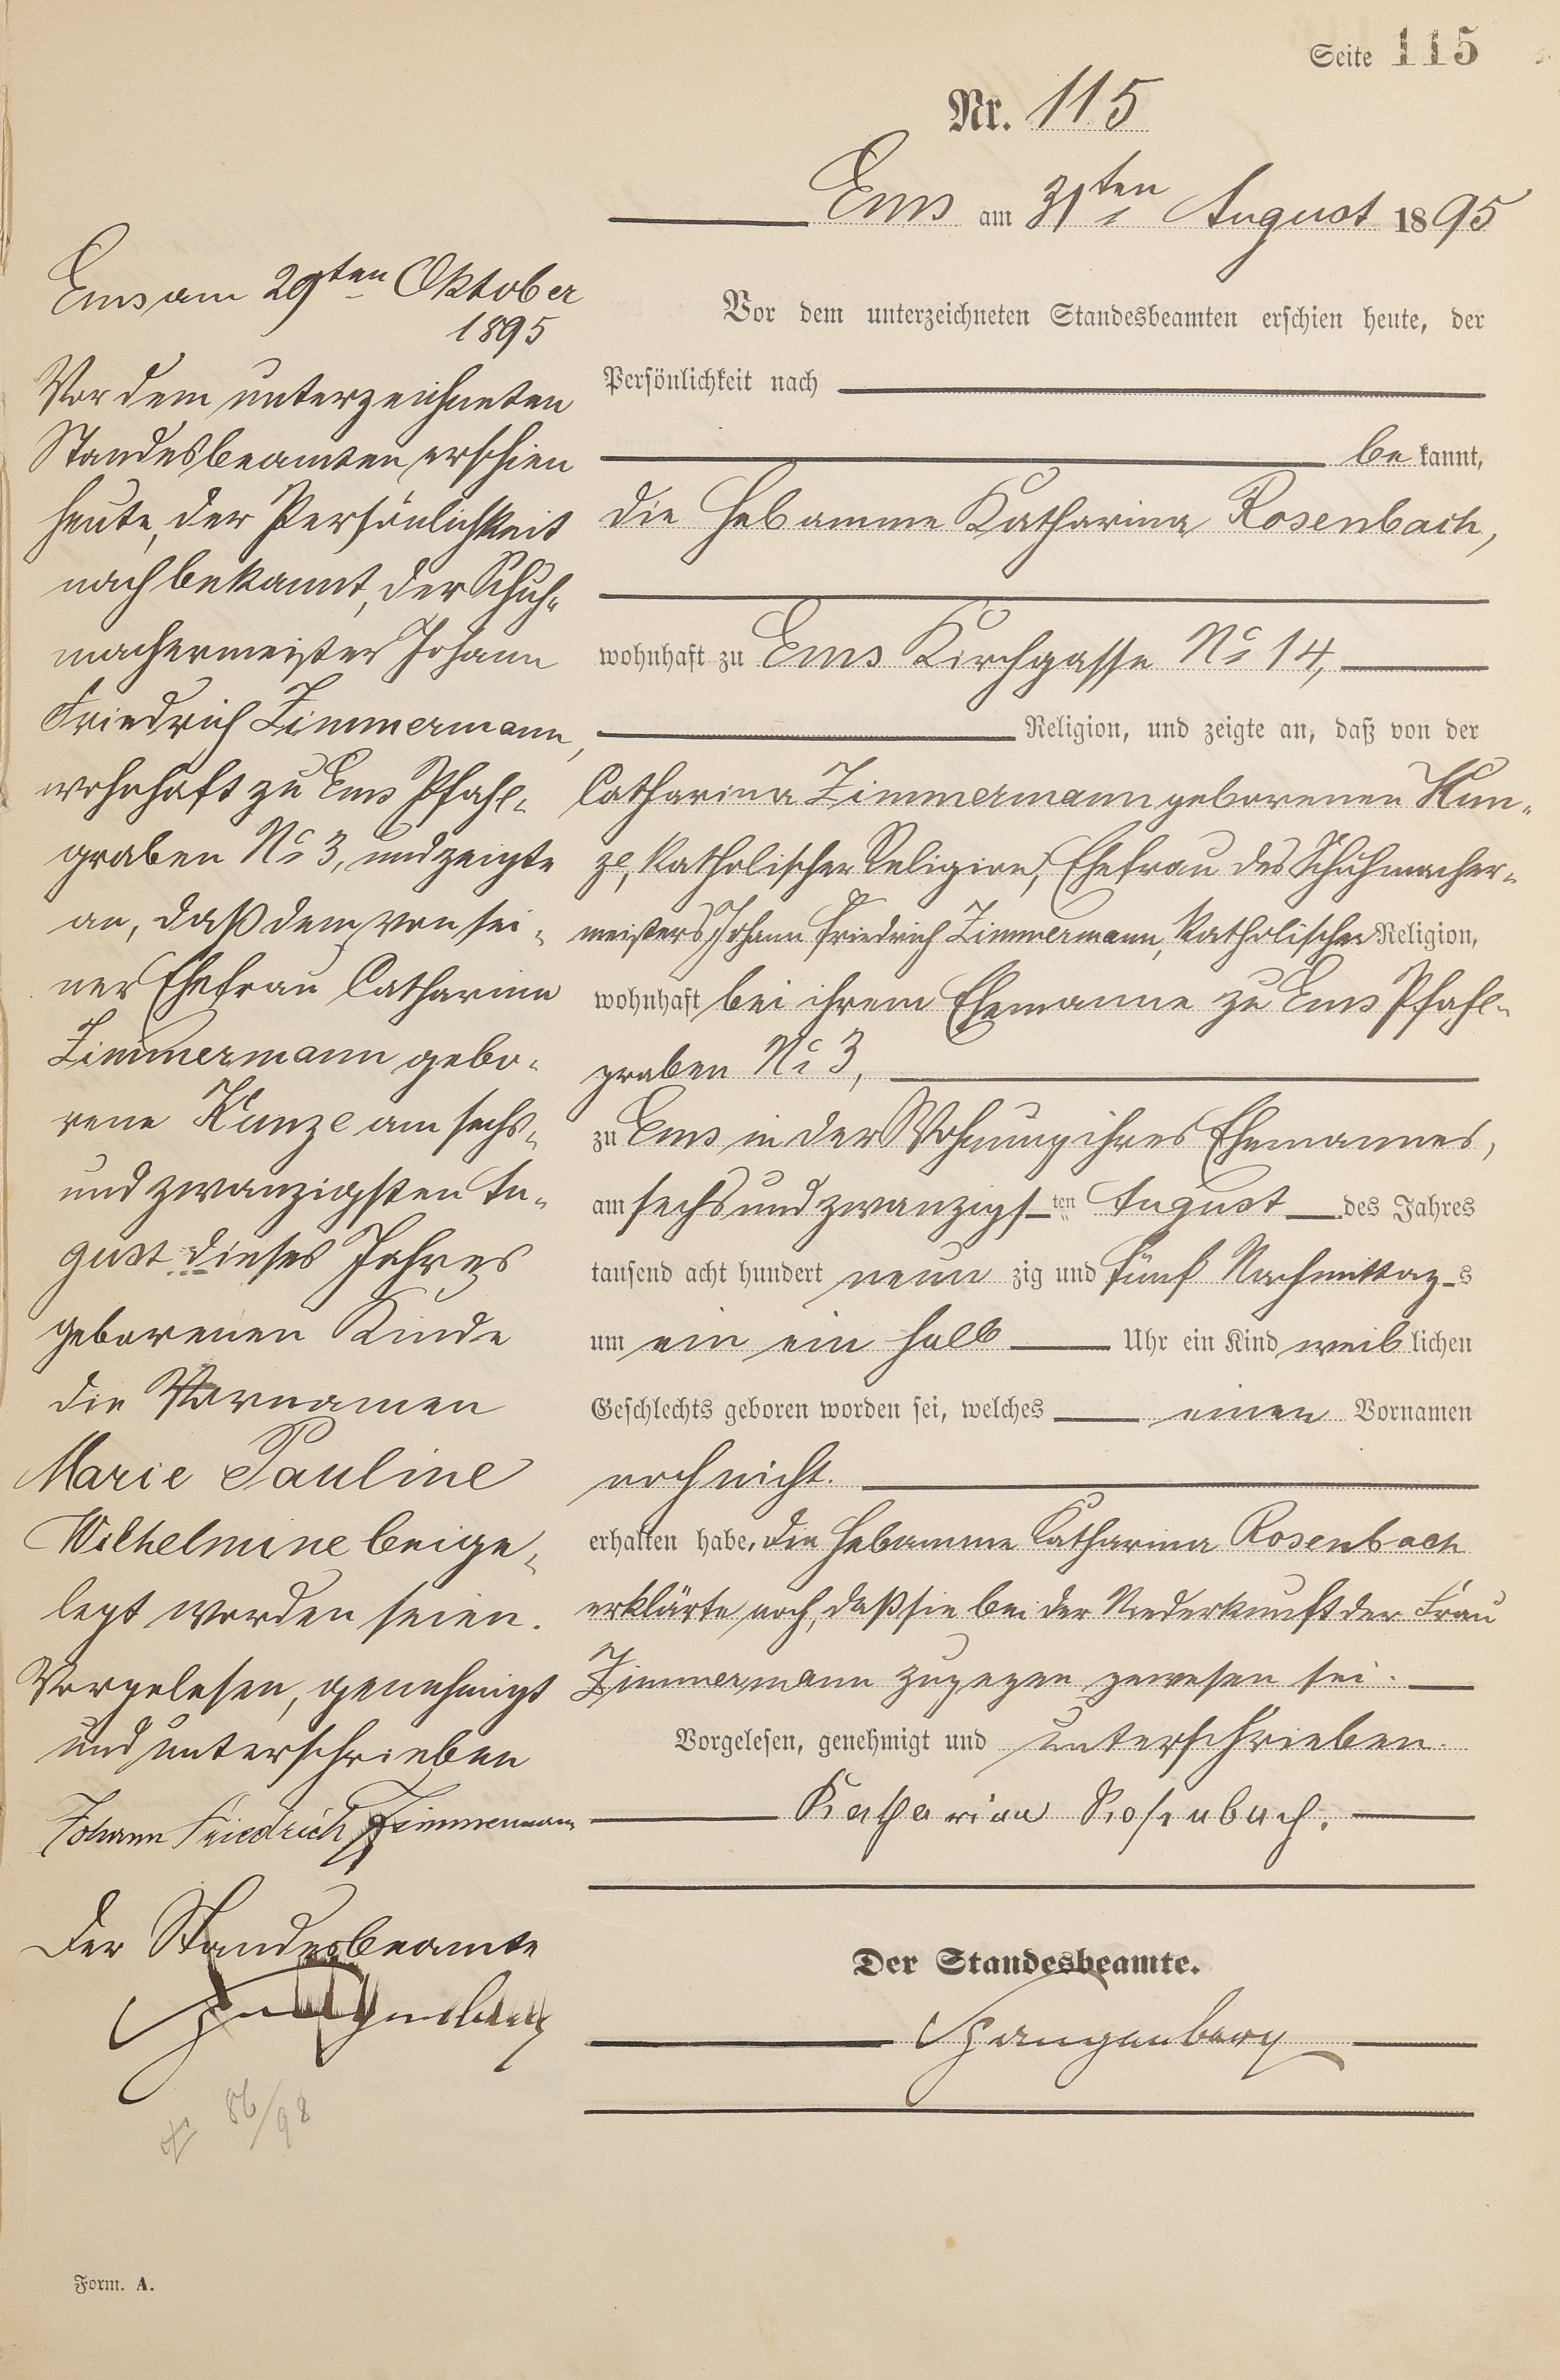 Seite 115
Nr. 115
Ems am 31ten August 1895
Vor dem unterzeichneten Standesbeamten erschien heute, der
Persönlichkeit nach
be kannt,
die Hebamme Katharina Rosenbach,
wohnhaft zu Ems Kirchgasse No 14,
Religion, und zeigte an, daß von der
Catharina Zimmermann geborenen Kun-
ze, katholischer Religion, Ehefrau des Schuhmacher-
meisters Johann Friedrich Zimmermann, katholischer Religion,
wohnhaft bei ihrem Ehemanne zu Ems Pfahl-
graben No 3,
zu Ems in der Wohnung ihres Ehemannes,
am sechsundzwanzigsten August des Jahres
tausend acht hundert neun zig und fünf Nachmittags
um ein ein halb Uhr ein Kind weib lichen
Geschlechts geboren worden sei, welches einen Vornamen
noch nicht.
erhalten habe. Die Hebamme Katharina Rosenbach
erklärte noch, daß sie bei der Niederkunft der Frau
Zimmermann zugegen gewesen sei.
Vorgelesen, genehmigt und unterschrieben.
Katharina Rosenbach.
Der Standesbeamte.
Spangenberg
Ems am 29ten Oktober
1895
Vor dem unterzeichneten
Standesbeamten erschien
heute, der Persönlichkeit
nach bekannt, der Schuh-
machermeister Johann
Friedrich Zimmermann,
wohnhaft zu Ems Pfahl-
graben No 3, und zeigte
an, daß dem von sei-
ner Ehefrau Catharina
Zimmermann gebo-
rene Kunze am sechs-
und zwanzigsten Au-
gust dieses Jahres
geborenen Kinde
die Vornamen
Marie Pauline
Wilhelmine beige-
legt worden seien.
Vorgelesen, genehmigt
und unterschrieben
Johann Friedrich Zimmermann
Der Standesbeamte
Spangenberg
86/98
Form. A.